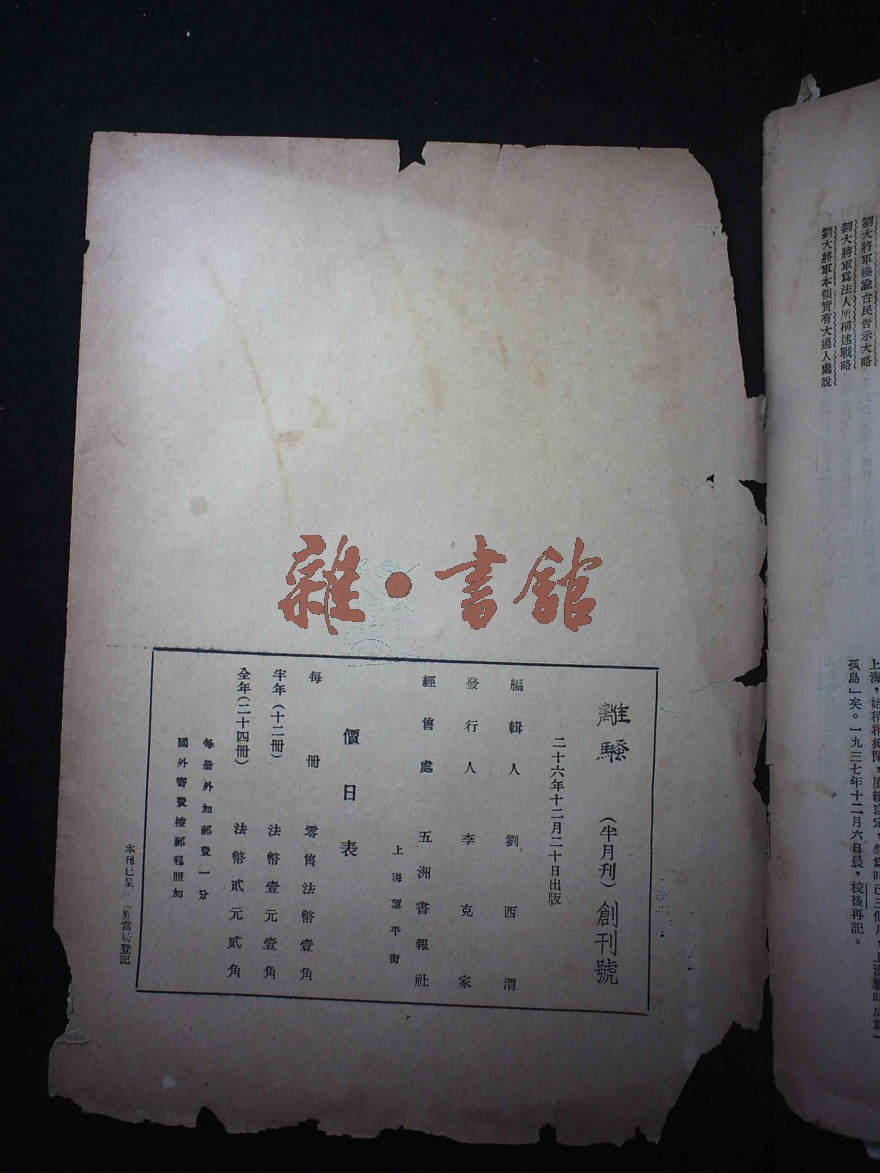 劉大將軍曉諭台民告示大略
劉大將軍爲法人所稱述戰略
劉大將軍本領實有大過人處說
孤島」矣。一九三七年十二月六日晨,校後再記。
雜·書館
離騷
(半月刊)創刊號
二十六年十二月二十日出版
編輯人 劉西渭
發行人 李克家
經售處 五洲書報社
上海望平街
價目表
每冊 零售法幣壹角
半年(十二冊) 法幣壹元壹角
全年(二十四冊) 法幣貳元貳角
每册外加郵費一分
國外寄費按郵程照加
本刊已呈 當局登記